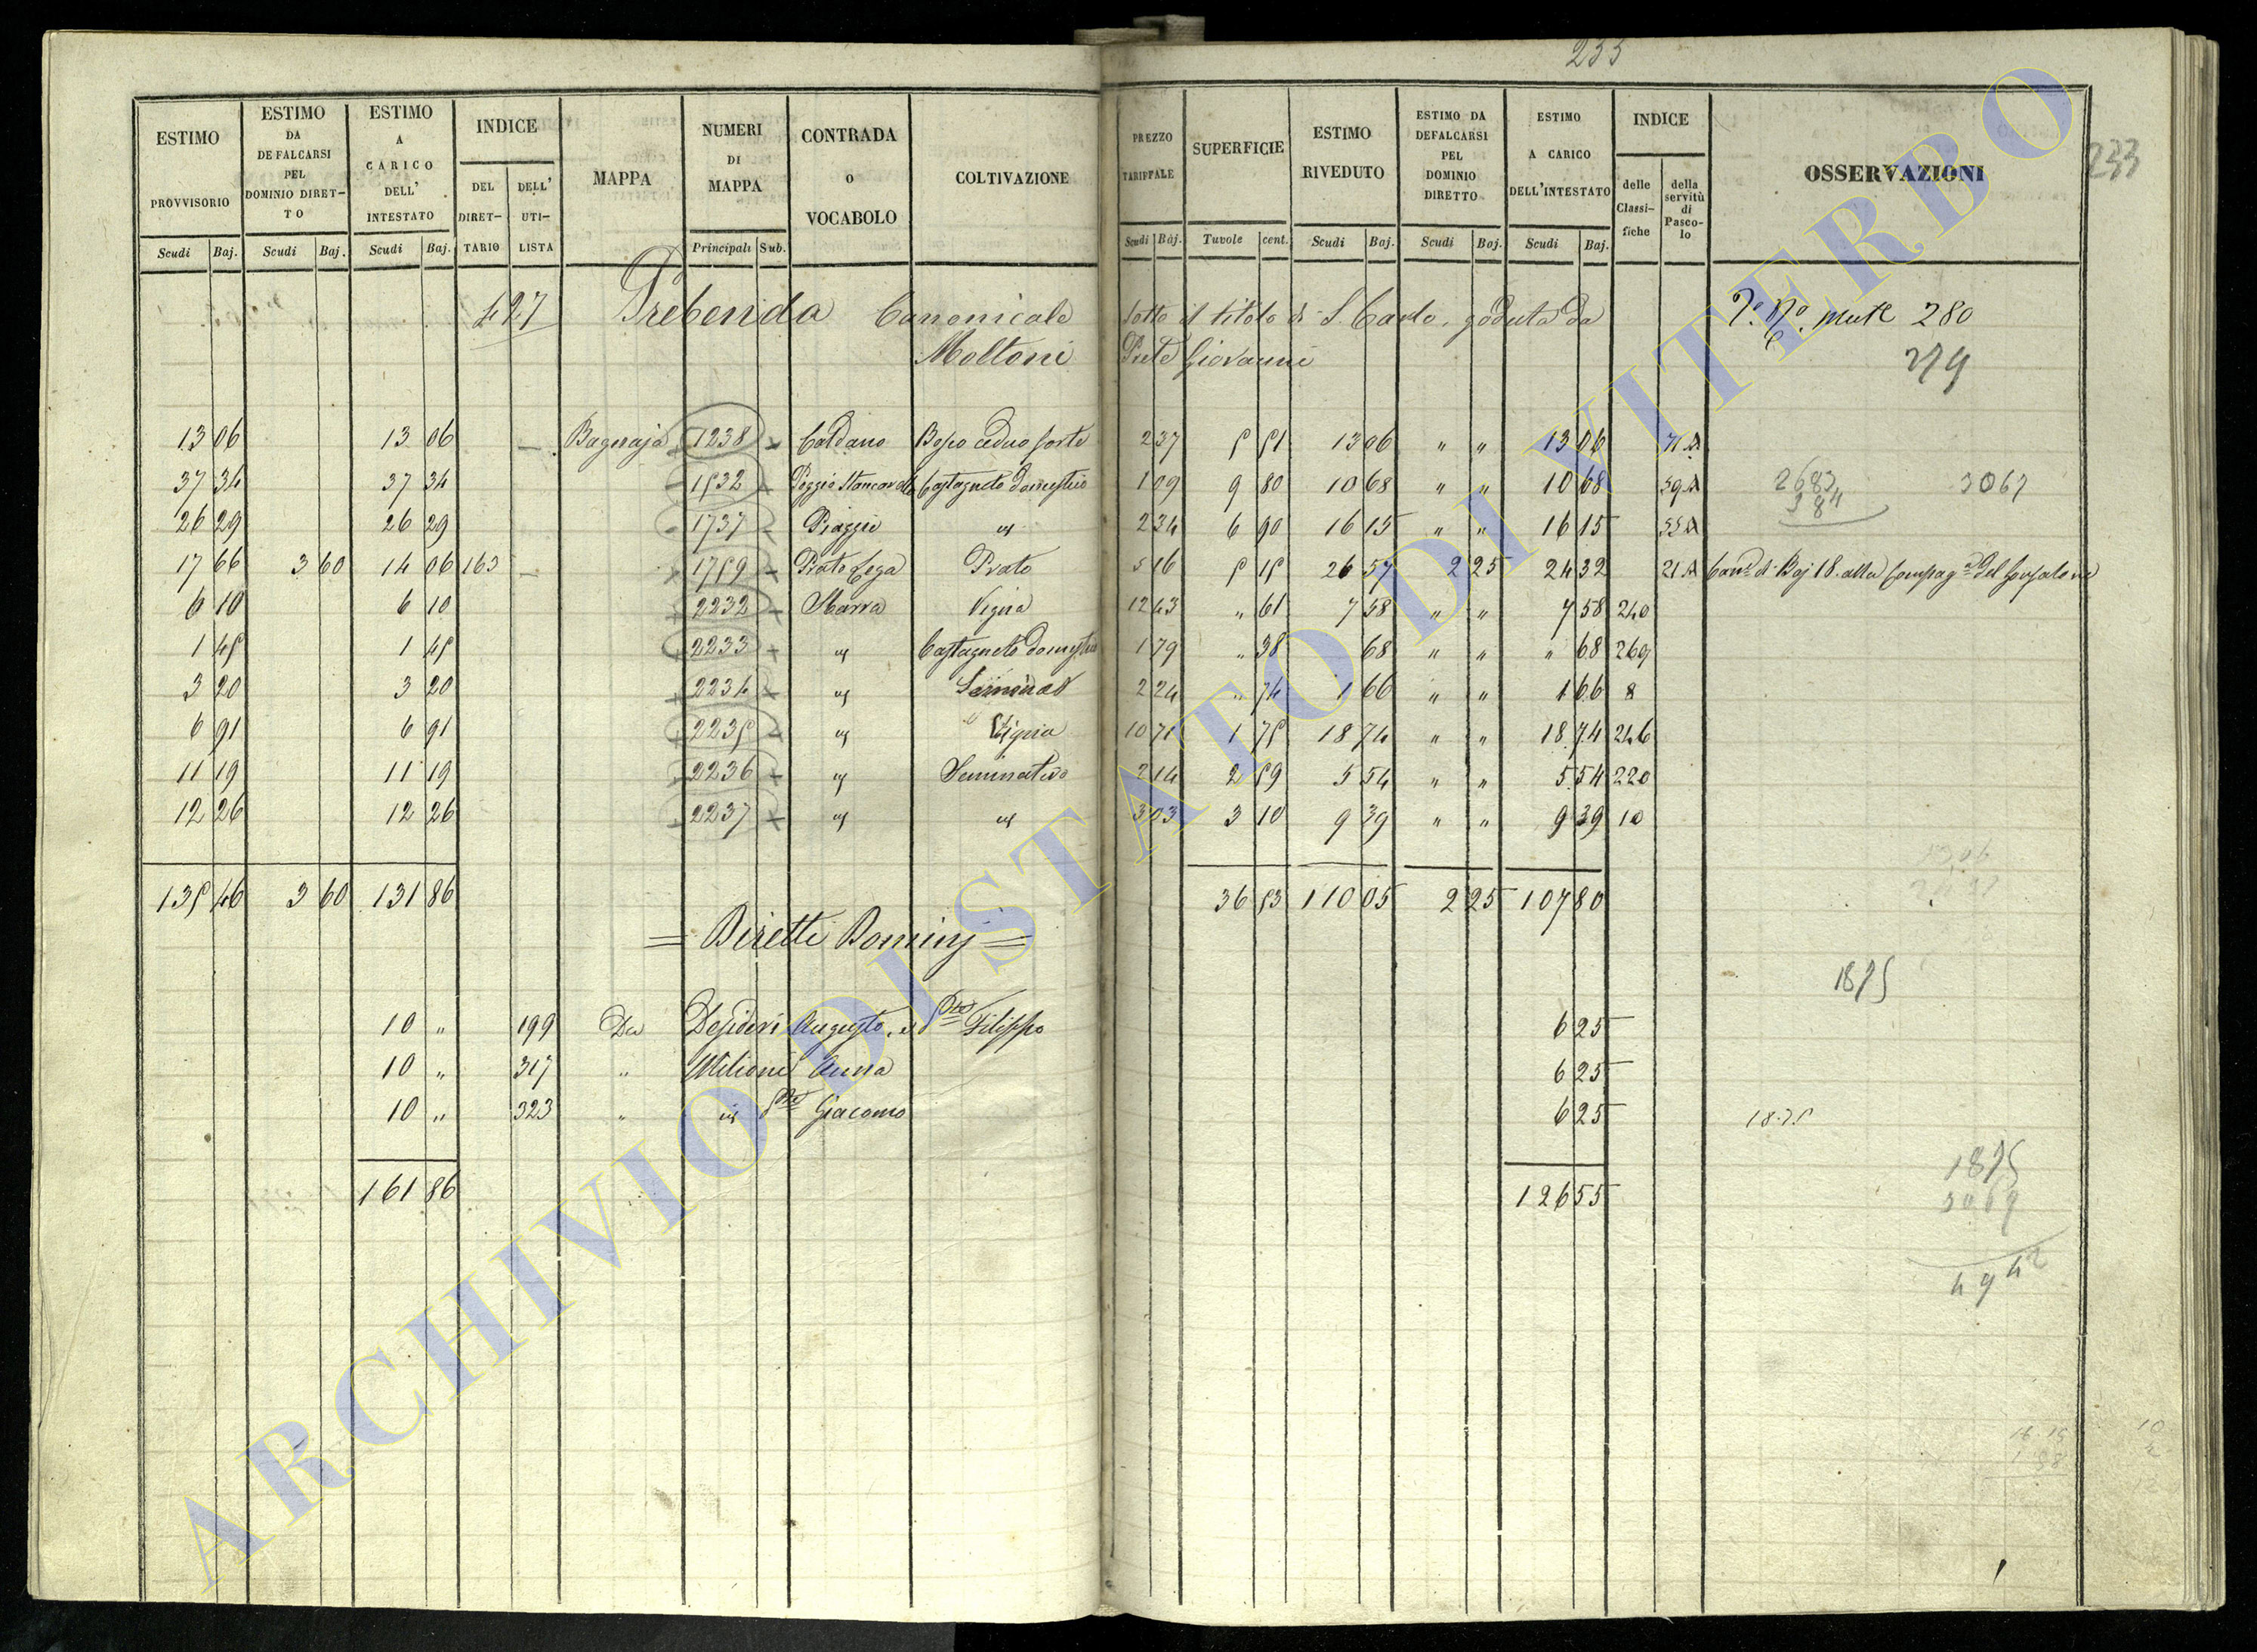 233
233
ESTIMO PROVVISORIO | ESTIMO DA DEFALCARSI PEL DOMINIO DIRETTO | ESTIMO A CARICO DELL' INTESTATO | INDICE DEL DIRETTARIO | DELL' UTILISTA | MAPPA | NUMERI DI MAPPA | CONTRADA o VOCABOLO | COLTIVAZIONE | PREZZO TARIFFALE | SUPERFICIE | ESTIMO RIVEDUTO | ESTIMO DA DEFALCARSI PEL DOMINIO DIRETTO | ESTIMO A CARICO DELL'INTESTATO | INDICE delle Classifiche | della servitù di Pascolo | OSSERVAZIONI
Scudi Baj. Scudi Baj. Scudi Baj. Principali Sub. Scudi Baj. Tavole cent. Scudi Baj. Scudi Baj. Scudi Baj.
427 Prebenda Canonicale sotto il titolo di S. Carlo, goduta da N.º Mute 280
Moltoni Prete Giovanni 279
13 06 13 06 Bagnaja 1238 Caldano Bosco ceduo forte 2 37 5 51 13 06 " " 13 06 71 A
37 34 37 34 1532 Poggio Castagneto domestico 1 09 9 80 10 68 " " 10 68 59 A 2683 384 3067
26 29 26 29 1737 Piazzie " 2 34 6 90 16 15 " " 16 15 55 A
17 66 3 60 14 06 163 1759 Prato Lega Prato 5 16 5 15 26 57 2 25 24 32 21 A Can.e di Baj 18. alla Compag.a del Gonfalone
6 10 6 10 2232 Sbarra Vigna 12 43 " 61 7 58 " " 7 58 240
1 45 1 45 2233 " Castagneto domestico 1 79 " 38 68 " " " 68 269
3 20 3 20 2234 " 2 24 " 74 1 66 " " 1 66 8
6 91 6 91 2235 " Vigna 10 71 1 75 18 74 " " 18 74 246
11 19 11 19 2236 " Seminativo 2 14 2 59 5 54 " " 5 54 220
12 26 12 26 2237 " " 3 03 3 10 9 39 " " 9 39 10
135 46 3 60 131 86 36 53 110 05 2 25 107 80
= Diretti Dominj =
1875
10 " 199 Da Desideri Augusto, e Filippo 6 25
10 " 317 " Milioni Anna 6 25
10 " 323 " Giacomo 6 25 18.75
1875
3067
161 86 126 55
4942
ARCHIVIO DI STATO DI VITERBO